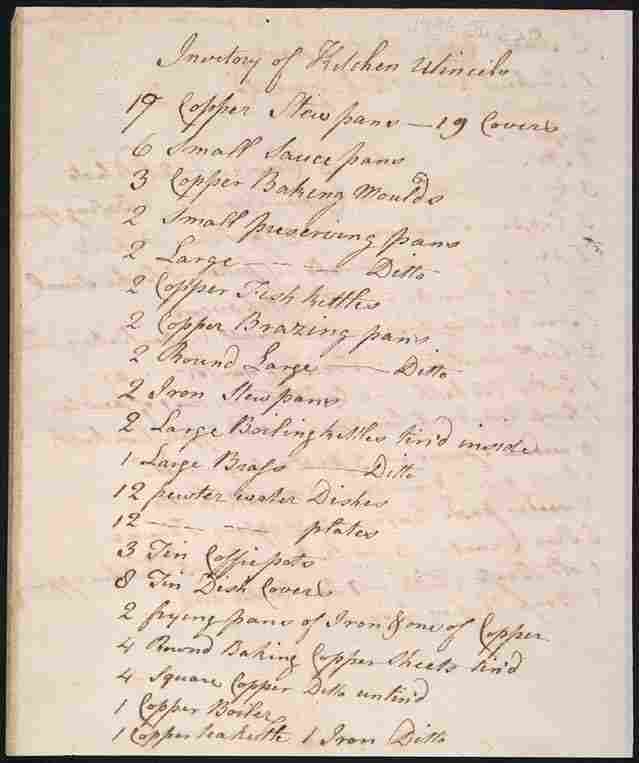 Inventory of Kitchen Utincils
19 Copper Stew pans — 19 Covers
6 Small Sauce pans
3 Copper Baking Moulds
2 Small preserving pans
2 Large - - - - Ditto
2 Copper Fish kettles
2 Copper Brazing pans
2 Round Large —— Ditto
2 Iron Stew pans
2 Large Boiling kettles tin'd inside
1 Large Brass —— Ditto
12 pewter water Dishes
12 — — — plates
3 Tin Coffie pots
8 Tin Dish Covers
2 frying pans of Iron & one of Copper
4 Round Baking Copper Sheets tin'd
4 Square Copper Ditto untin'd
1 Copper Boiler
1 Copper teakettle 1 Iron Ditto